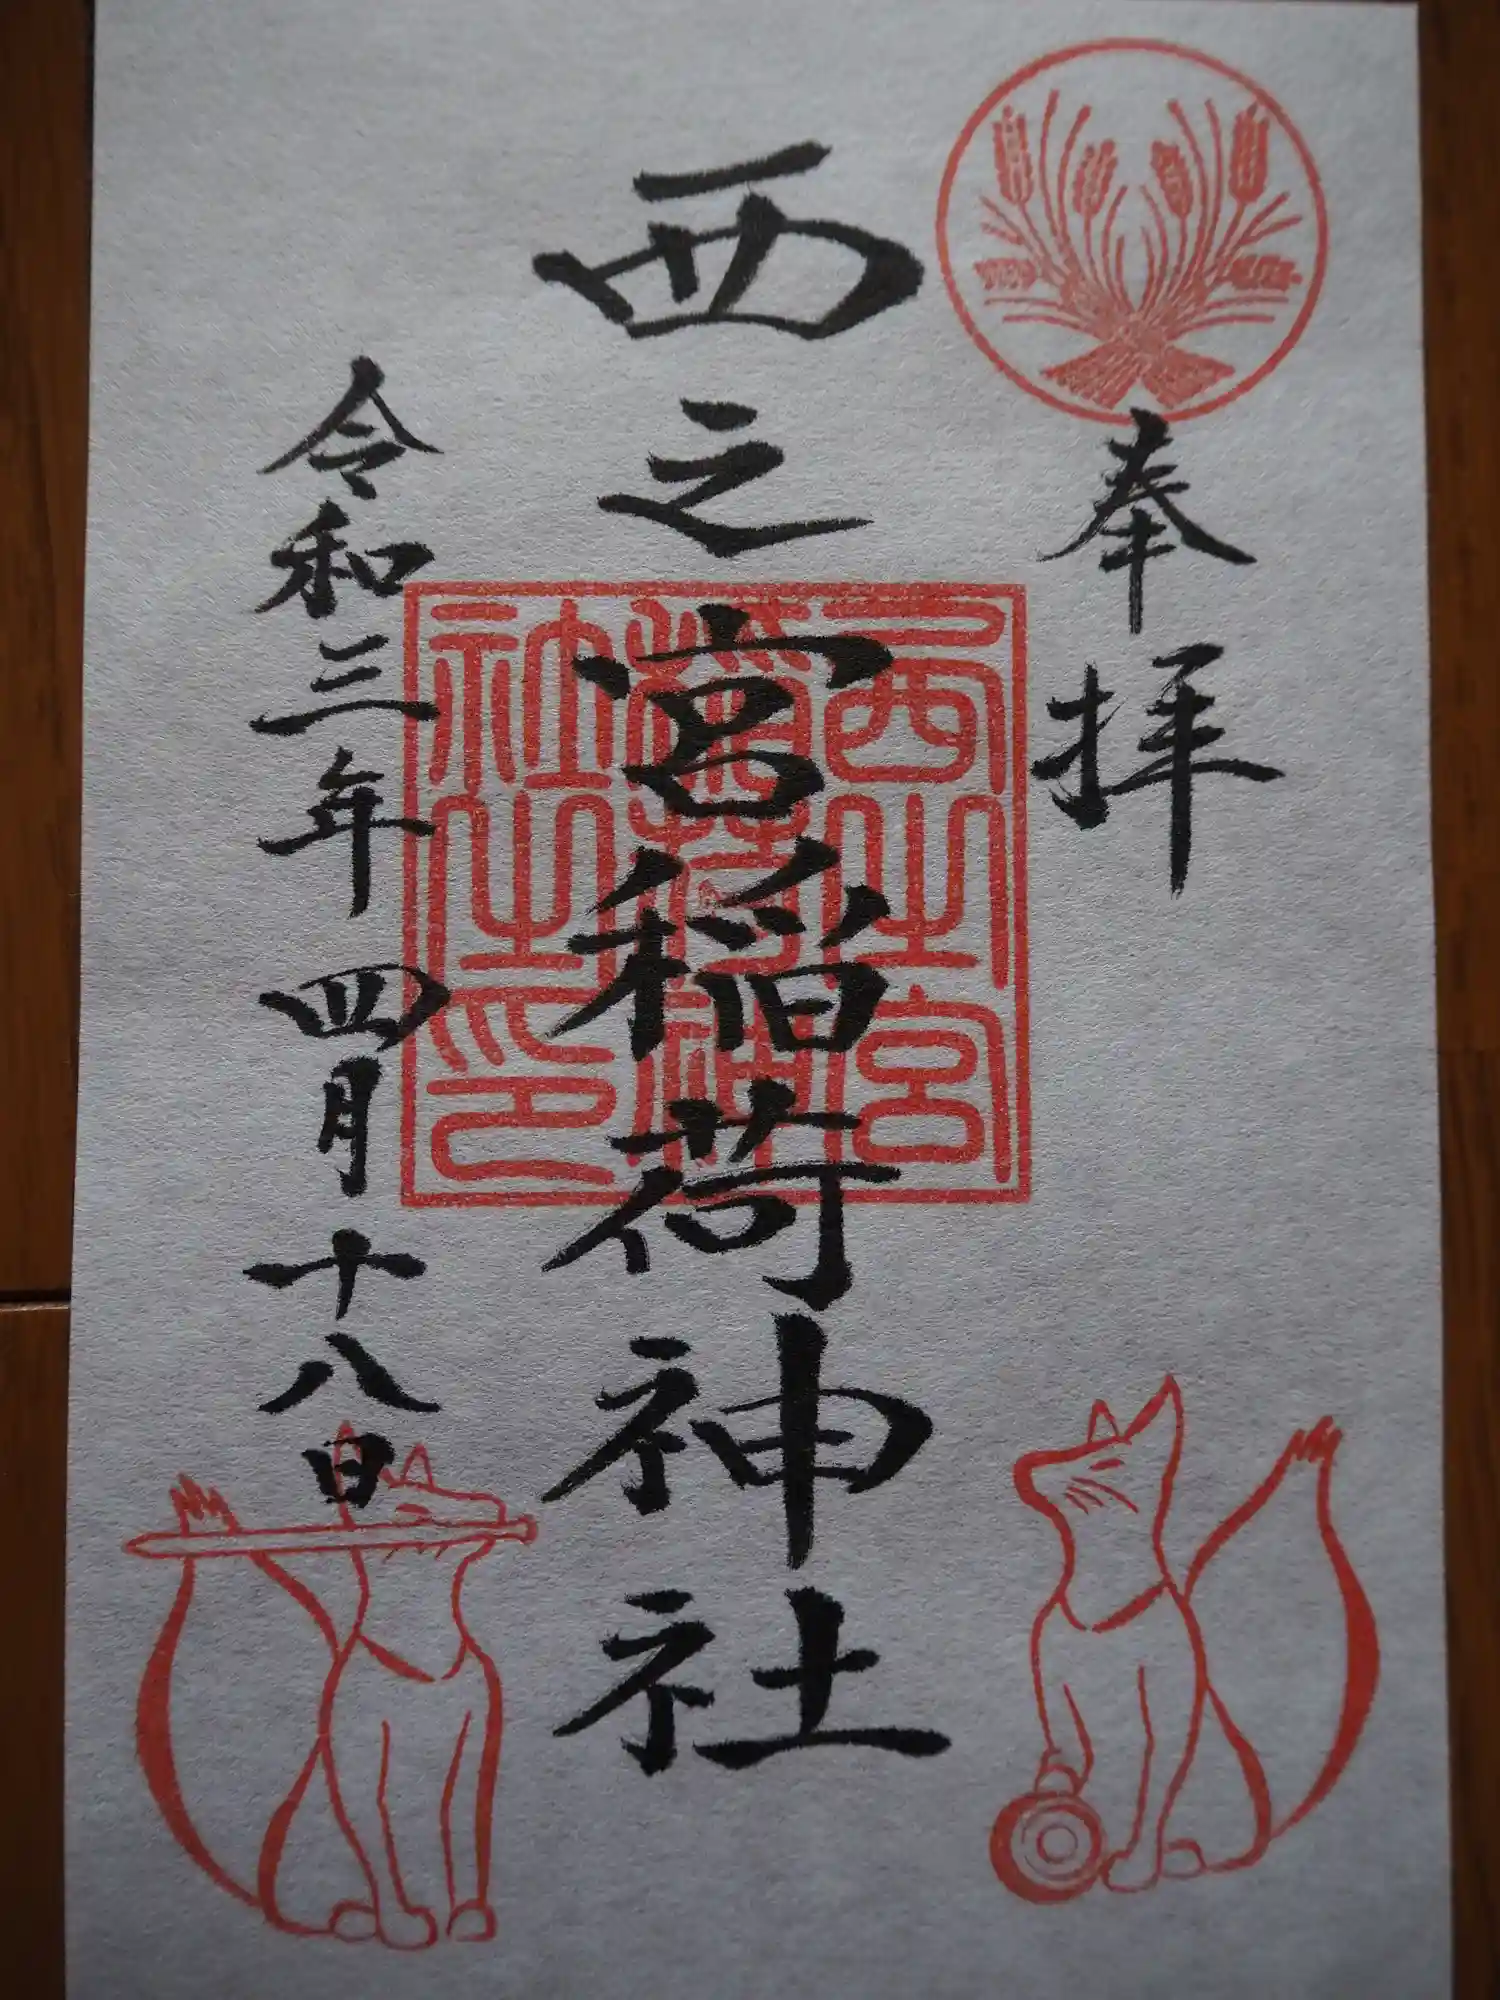 奉拝
西之宮稲荷神社
西之宮稲荷神社之印
令和三年四月十八日